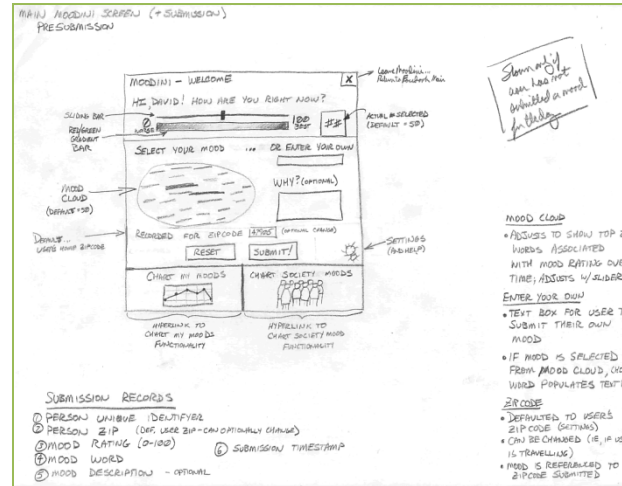 MAIN MOODINI SCREEN (+ SUBMISSION)
PRESUBMISSION
Shown only if
user has not
submitted a mood
for the day
MOODINI - WELCOME X
Leave Moodini...
HI, DAVID! HOW ARE YOU RIGHT NOW?
SLIDING BAR
RED/GREEN
GRADIENT
BAR
0
WORST
100
BEST
##
ACTUAL # SELECTED
(DEFAULT = 50)
SELECT YOUR MOOD ... OR ENTER YOUR OWN
WHY? (OPTIONAL)
MOOD
CLOUD
(DEFAULT=50)
DEFAULT...
USER'S HOME ZIPCODE
RECORDED FOR ZIPCODE (OPTIONAL CHANGE)
RESET SUBMIT!
SETTINGS
(AND HELP)
CHART MY MOODS CHART SOCIETY MOODS
HYPERLINK TO
CHART MY MOODS
FUNCTIONALITY
HYPERLINK TO
CHART SOCIETY MOOD
FUNCTIONALITY
MOOD CLOUD
• ADJUSTS TO SHOW TOP
WORDS ASSOCIATED
WITH MOOD RATING OVE
TIME; ADJUSTS W/ SLIDER
ENTER YOUR OWN
• TEXT BOX FOR USER T
SUBMIT THEIR OWN
MOOD
• IF MOOD IS SELECTED
FROM MOOD CLOUD, CHO
WORD POPULATES TEXT
ZIPCODE
• DEFAULTED TO USER'S
ZIPCODE (SETTINGS)
• CAN BE CHANGED (IE, IF US
IS TRAVELLING)
• MOOD IS REFERENCED TO
ZIPCODE SUBMITTED
SUBMISSION RECORDS
① PERSON UNIQUE IDENTIFYER
② PERSON ZIP (DEF. USER ZIP - CAN OPTIONALLY CHANGE)
③ MOOD RATING (0-100)
④ MOOD WORD
⑤ MOOD DESCRIPTION - OPTIONAL
⑥ SUBMISSION TIMESTAMP